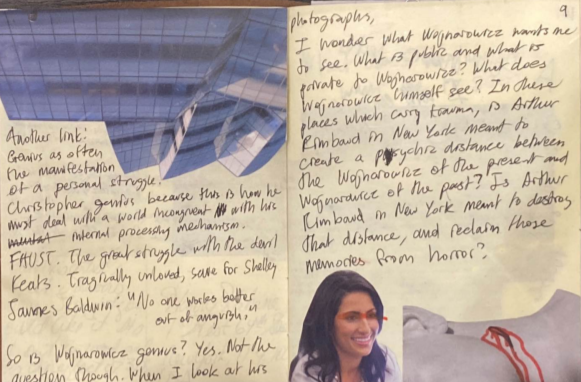 Another link:
Genius as often
the manifestation
of a personal struggle.
Christopher genius because this is how he
must deal with a world incongruent with his
internal processing mechanism.
FAUST. The great struggle with the devil
Keats. Tragically unloved, save for Shelley
James Baldwin: "No one works better
out of anguish,"
So is Wojnarowicz genius? Yes. Not the
question though. When I look at his
9
photographs,
I wonder what Wojnarowicz wants me
to see. What is public and what is
private to Wojnarowicz? What does
Wojnarowicz himself see? In these
places which carry trauma, is Arthur
Rimbaud in New York meant to
create a psychic distance between
the Wojnarowicz of the present and
Wojnarowicz of the past? Is Arthur
Rimbaud in New York meant to destroy
that distance, and reclaim those
memories from horror?